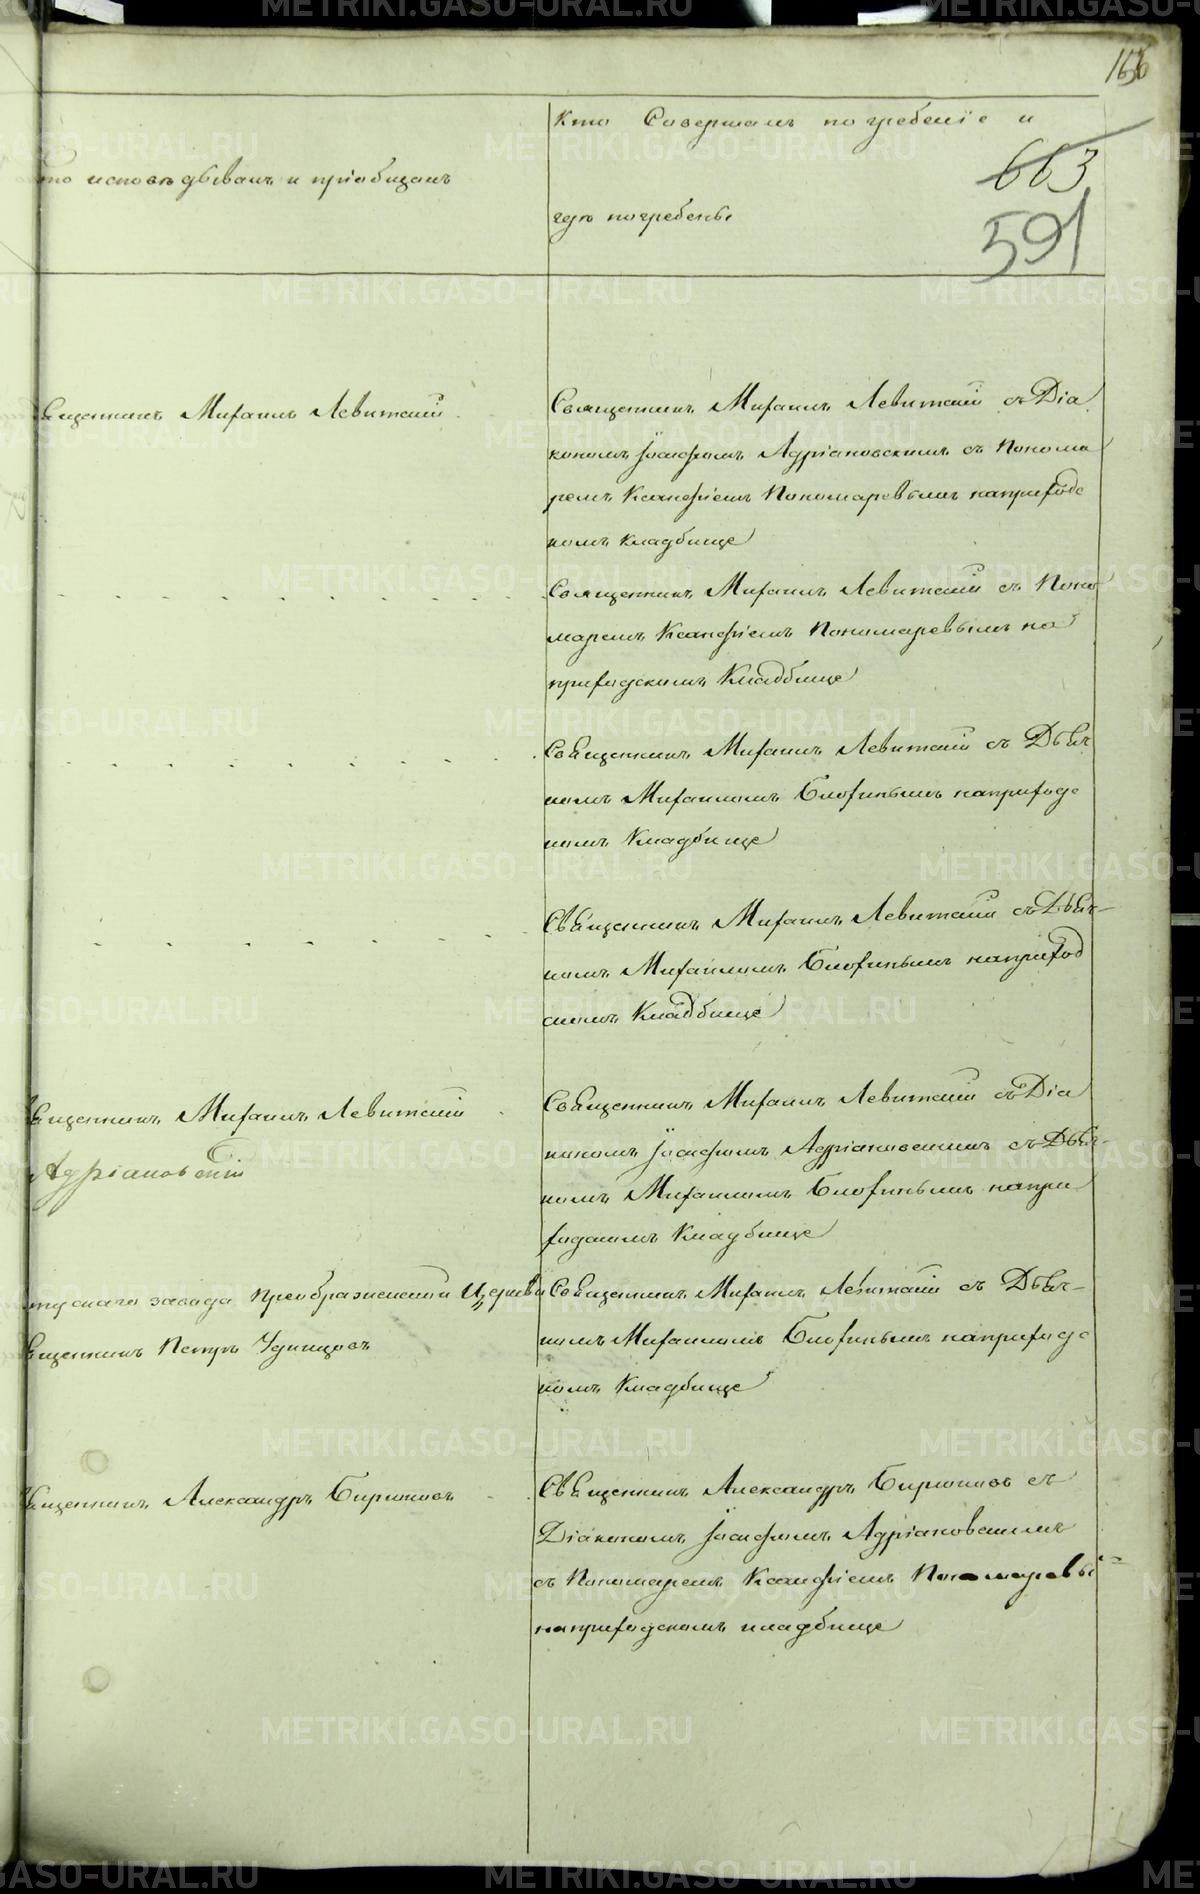 166
Кто Совершалъ погребенїе и
663
то исповѣдывалъ и прiобщалъ
гдѣ погребены
591
вященникъ Михаилъ Левитскiй
Священникъ Михаилъ Левитскiй съ Дiа
кономъ Iоасафомъ Адрiановскимъ съ Понома
ремъ Ксанфiемъ Пономаревымъ наприходс
комъ кладбище
Священникъ Михаилъ Левитскiй съ Поно
маремъ Ксанфiемъ Пономаревымъ на
приходскомъ Кладбище
Священникъ Михаилъ Левитскiй съ Дьяч
комъ Михаиломъ наприходс
комъ Кладбище
Священникъ Михаилъ Левитскiй съ Дьяч-
комъ Михаиломъ наприход
скомъ Кладбище
вященникъ Михаилъ Левитскiй
Адрiановскiй
Священникъ Михаилъ Левитскiй съ Дiа
кономъ Iоасафомъ Адрiановскимъ съ Дьяч-
комъ Михаиломъ напри
ходскомъ Кладбище
завода Преображенской Церкви
вященникъ Петръ Удинцовъ
Священникъ Михаилъ Левитскiй съ Дьяч-
комъ Михаиломъ наприходс
комъ Кладбище
вященникъ Александръ Бирюковъ
Священникъ Александръ Бирюковъ съ
Дiакономъ Iоасафомъ Адрiановскимъ
съ Пономаремъ Ксанфiемъ Пономаревы=
наприходскомъ кладбище
METRIKI.GASO-URAL.RU